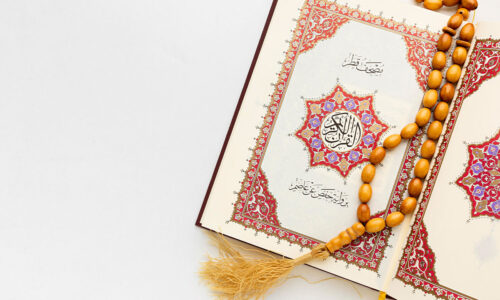 مصحف قطر
القرآن الكريم
برواية حفص عن عاصم